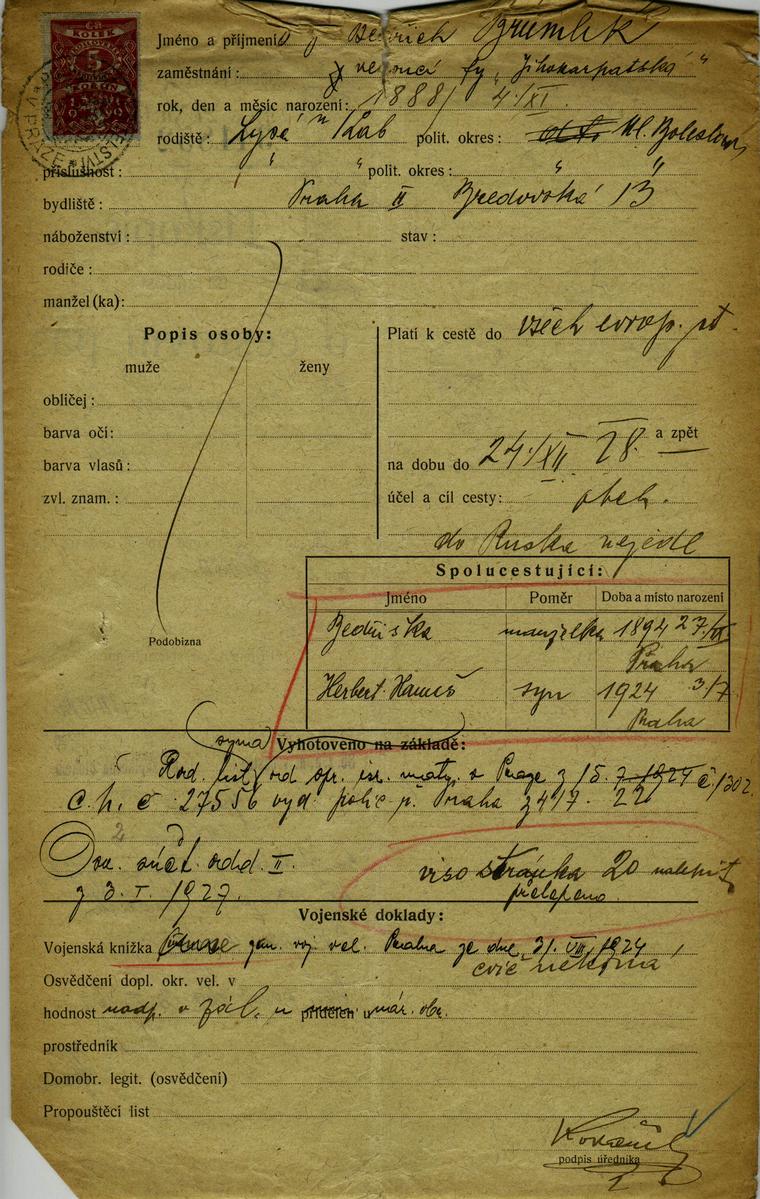 Jméno a příjmení Bedřich Brumlik
zaměstnání: vedoucí fy „Jihokarpatská"
rok, den a měsíc narození: 1888/ 4./XI.
rodiště: Lysá n Lab polit. okres: Ml. Boleslav
příslušnost: " " polit. okres: " "
bydliště: Praha II Bredovská 13
náboženství: stav:
rodiče:
manžel (ka):
Popis osoby:
muže ženy
obličej:
barva očí:
barva vlasů:
zvl. znam.:
Podobizna
Platí k cestě do všech evrop. st.
na dobu do 24./XII 28. a zpět —
účel a cíl cesty: obch.
do Ruska nejede
Spolucestující:
Jméno Poměr Doba a místo narození
Bedřiška manželka 1894 27/IX
Praha
Herbert Hanuš syn 1924 3/7
Praha
syna
Vyhotoveno na základě:
Rod. list od spr. isr. matr. v Praze z 15. 7. 1924 č/302
č. 27556 vyd. polic. ř. Praha z 4/7. 22
odd. II.
z 3. I. 1927.
viso stránka 20 nalepit
přelepeno
Vojenské doklady:
Vojenská knížka voj. vel. Praha ze dne 31. VIII. 1924
cvič nekoná
Osvědčení dopl. okr. vel. v
hodnost v zál. u přidělen u nár. obr.
prostředník
Domobr. legit. (osvědčení)
Propouštěcí list
podpis úředníka